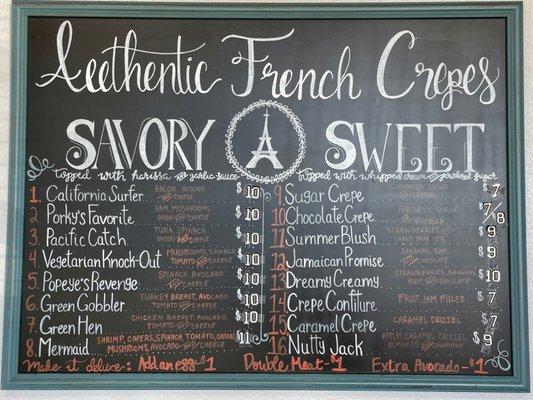 Authentic French Crepes
SAVORY SWEET
Topped with harissa or garlic sauce
Topped with whipped cream or powdered sugar
1. California Surfer BACON, AVOCADO AND CHEESE $10
2. Porky's Favorite HAM, MUSHROOMS, ONION AND CHEESE $10
3. Pacific Catch TUNA, SPINACH, ONION AND CHEESE $10
4. Vegetarian Knock-Out MUSHROOMS, SPINACH, TOMATO AND CHEESE $10
5. Popeye's Revenge SPINACH, AVOCADO, AND CHEESE $10
6. Green Gobbler TURKEY BREAST, AVOCADO, TOMATO AND CHEESE $10
7. Green Hen CHICKEN BREAST, AVOCADO, TOMATO AND CHEESE $10
8. Mermaid SHRIMP, CAPERS, SPINACH, TOMATO, ONION, MUSHROOMS, AVOCADO AND CHEESE $11
9 Sugar Crepe CINNAMON, SUGAR $7
10 Chocolate Crepe HERSHEY'S SYRUP OR NUTELLA $7/8
11 Summer Blush STRAWBERRIES GRAND MARNIER $9
12 Jamaican Promise BANANAS, RUM AND CHOCOLATE $9
13 Dreamy Creamy STRAWBERRIES, BANANAS, RUM AND CHOCOLATE $10
14 Crepe Confiture FRUIT JAM FILLED $7
15 Caramel Crepe CARAMEL DRIZZLE $7
16 Nutty Jack APPLES, CARAMEL DRIZZLE ALMONDS AND CINNAMON $9
Make it deluxe: Add an egg - $1 Double Meat - $1 Extra Avocado - $1